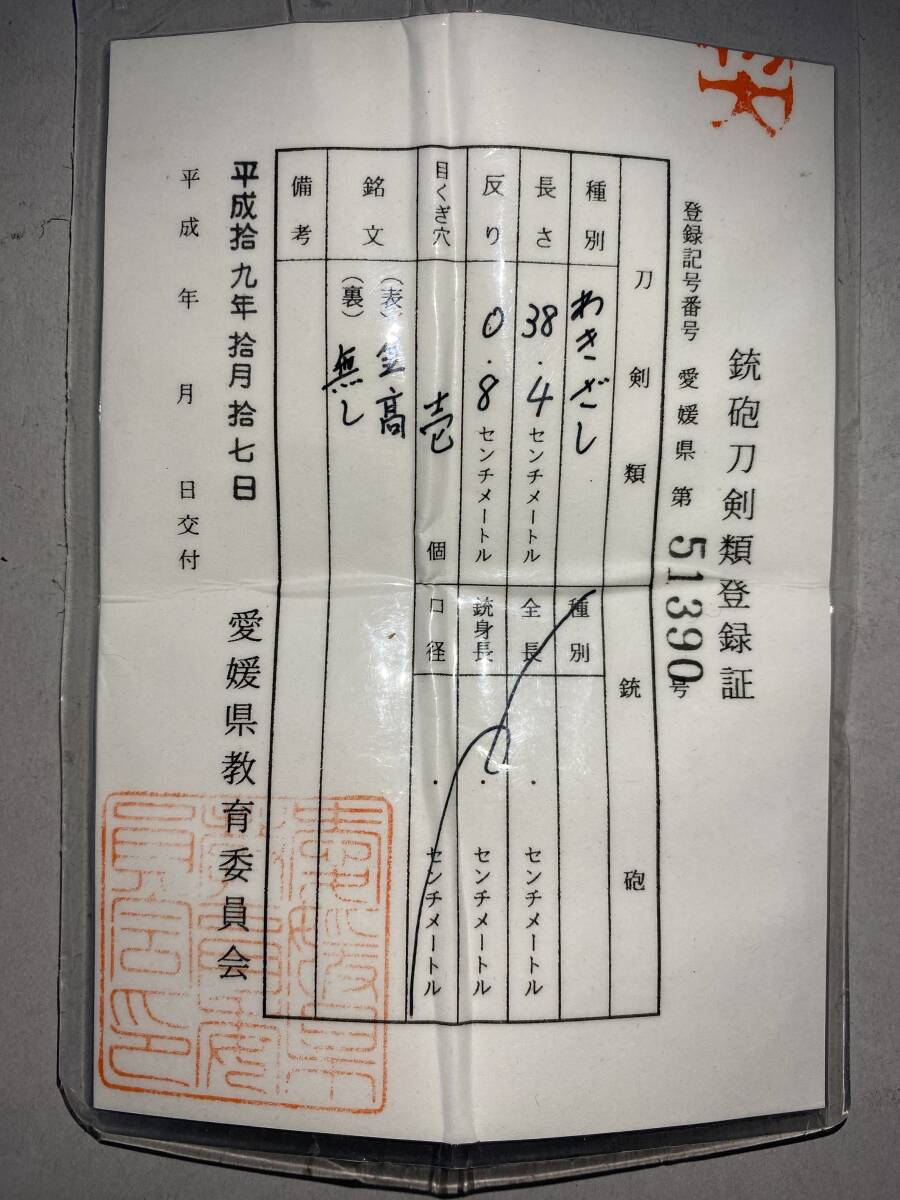 銃砲刀剣類登録証
登録記号番号 愛媛県 第 51390 号
刀剣類
種別 わきざし
長さ 38.4 センチメートル
反り 0.8 センチメートル
目くぎ穴 壱 個
銘文 (表) 高
(裏) 無し
備考
銃砲
種別
全長 . センチメートル
銃身長 . センチメートル
口径 . センチメートル
平成拾九年拾月拾七日
平成 年 月 日交付
愛媛県教育委員会